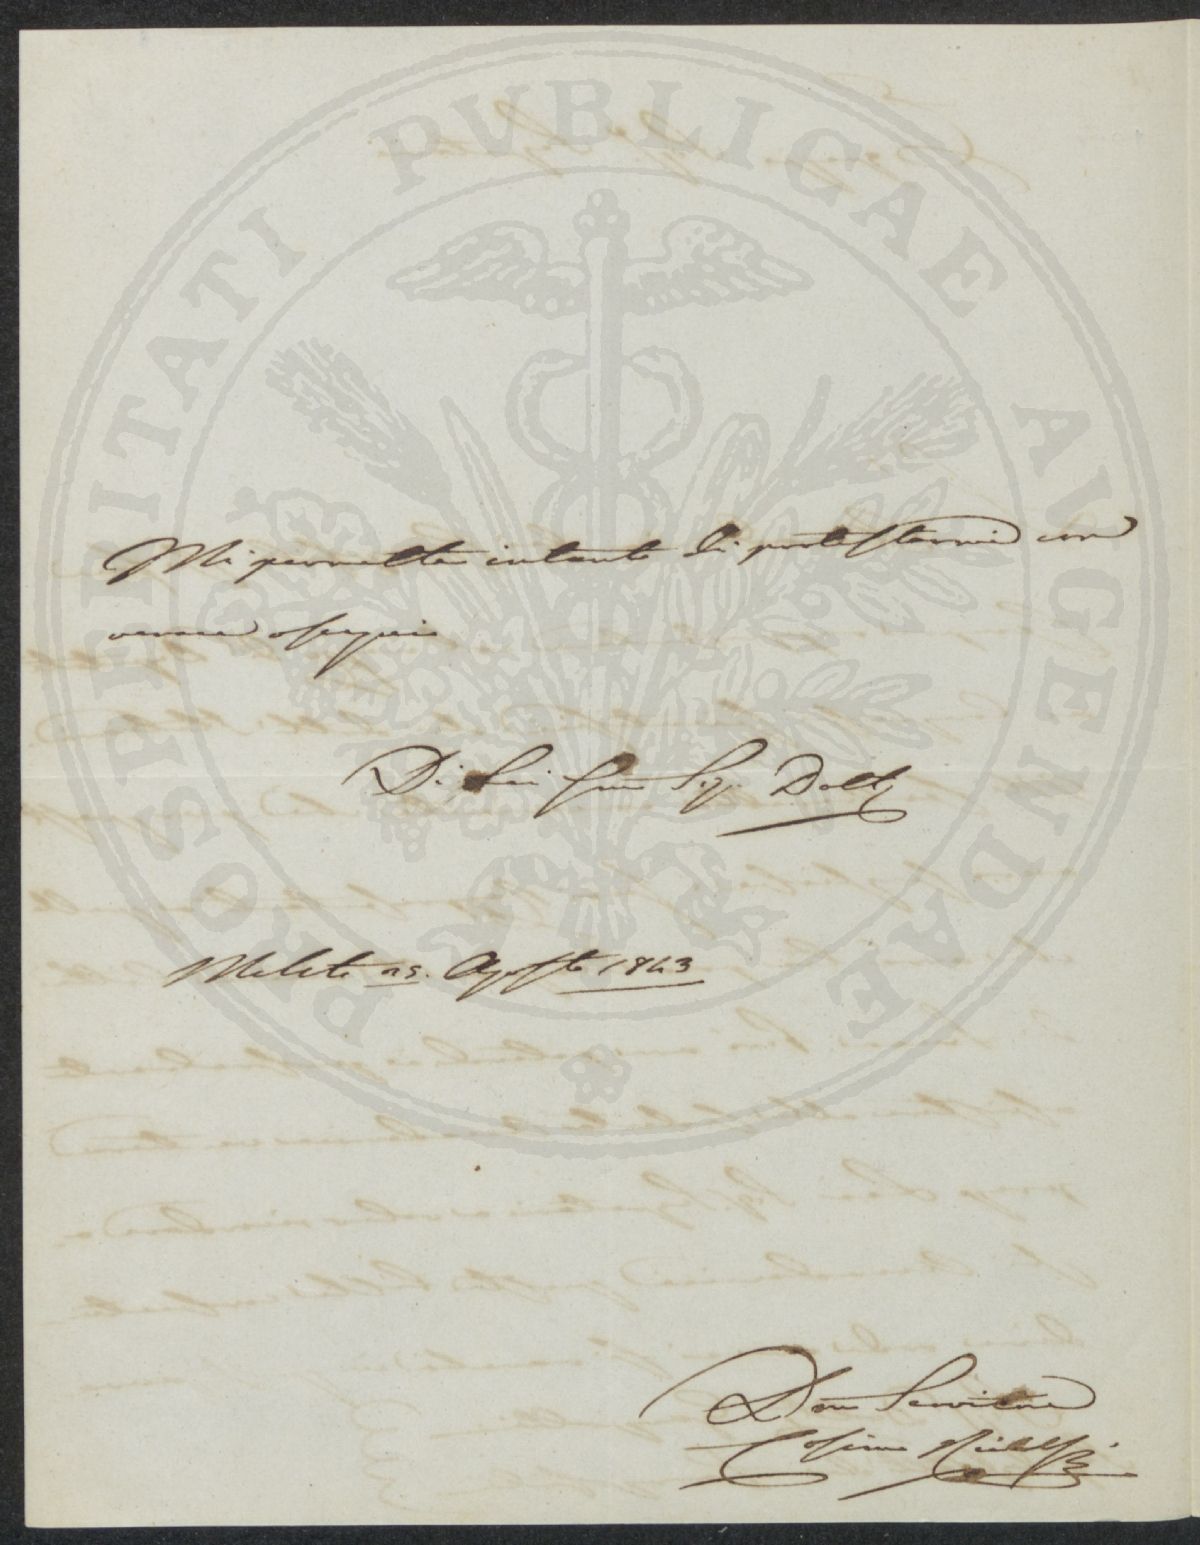 PROSPERITATI PVBLICAE AVGENDAE
Mi permetta intanto di protestarmi con
verace ossequio
Di Lei Sig.
Meleto 25. Agosto 1843
Servitore
Cosimo Ridolfi